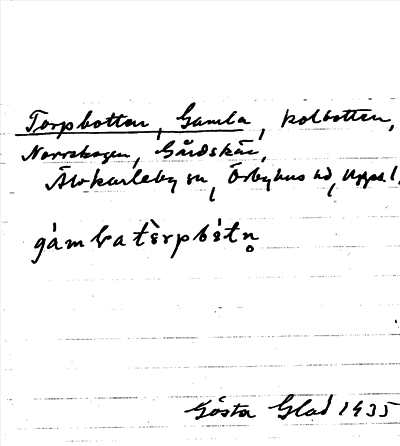 Torpbotten, Gamla, kolbotten,
Norrskogen, Gårdskär,
Älvkarleby sn, Örbyhus hd, Uppsl.
gámbatὲrpbɛ́tn̥
Gösta Glad 1935